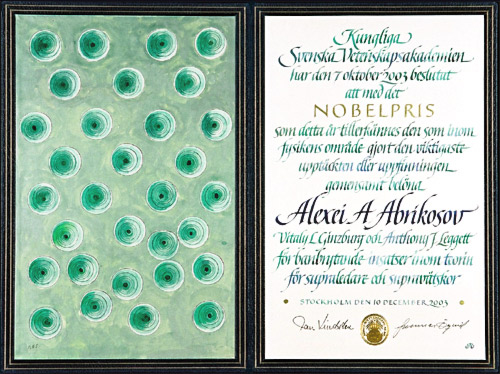 Kungliga
Svenska Vetenskapsakademien
har den 7 oktober 2003 beslutat
att med det
NOBELPRIS
som detta år tillerkännes den som inom
fysikens område gjort den viktigaste
upptäckten eller uppfinningen
gemensamt belöna
Alexei A Abrikosov
Vitaly L Ginzburg och Anthony J Leggett
för banbrytande insatser inom teorin
för supraledare och supravätskor
STOCKHOLM DEN 10 DECEMBER 2003